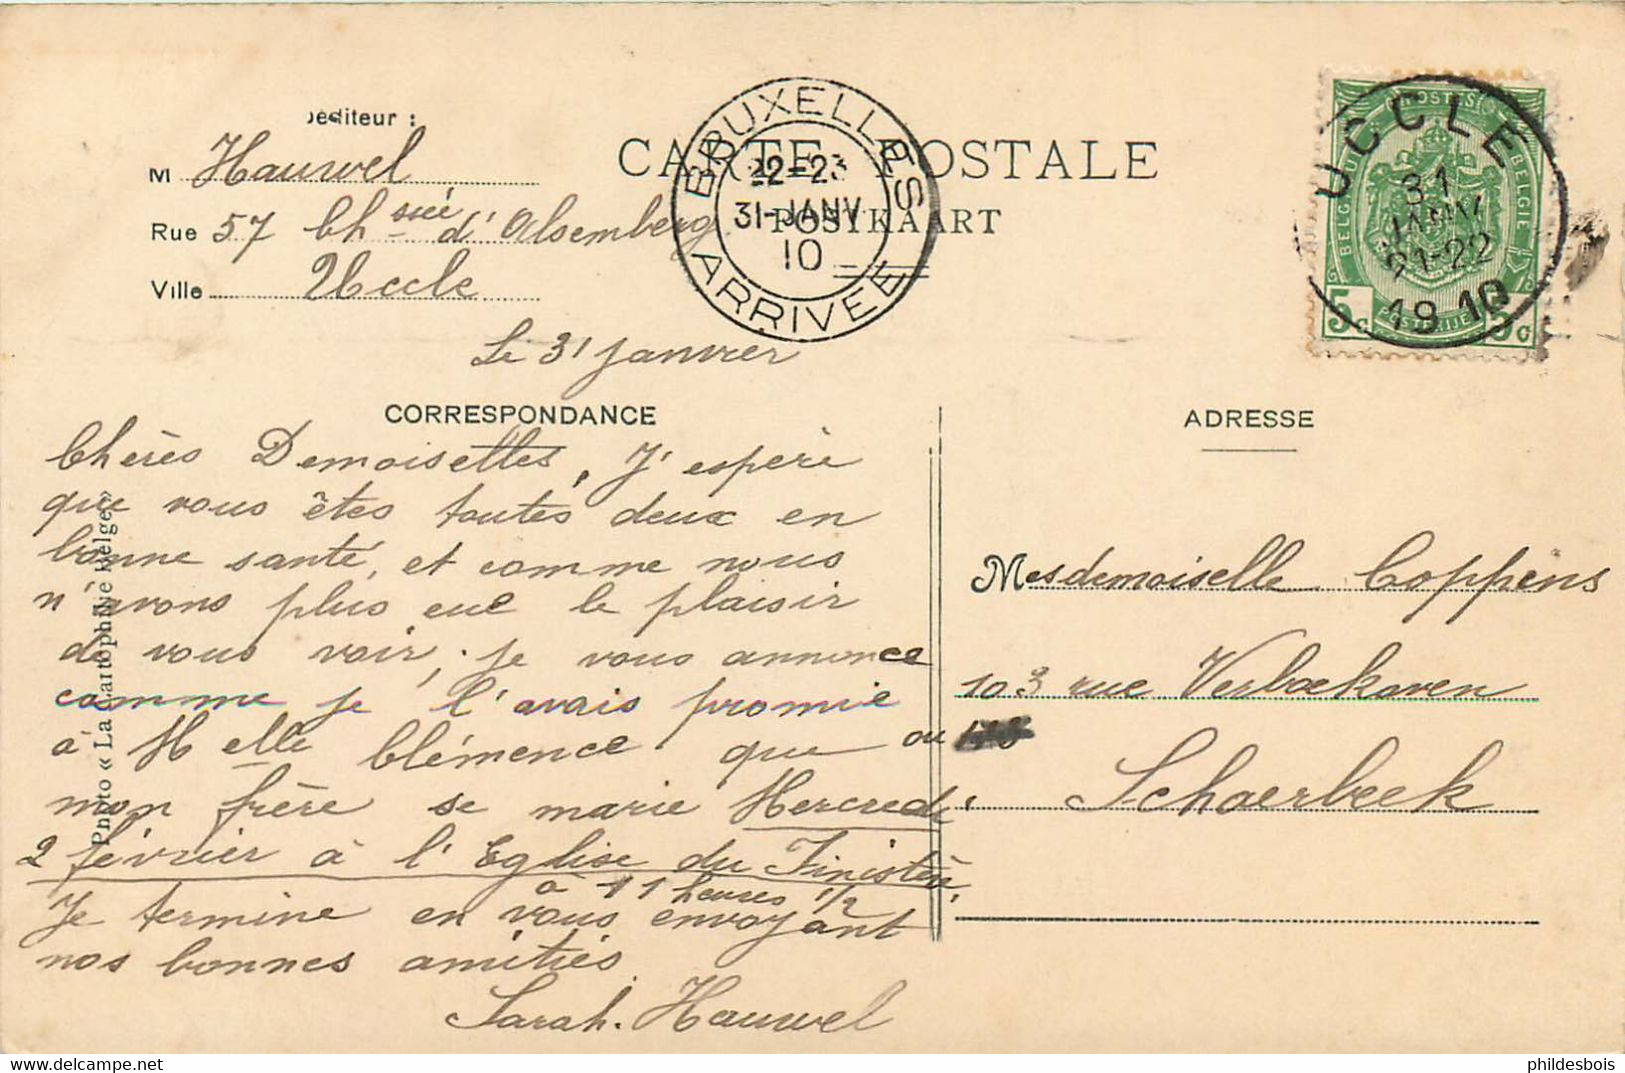 éditeur :
M Hauwel
CARTE POSTALE
POSTKAART
Rue 57 Chssée d'Alsemberg
Ville Uccle
BRUXELLES
22-23
31-JANV
10
ARRIVEE
UCCLE
31
JANV
21-22
1910
BELGIQUE
BELGIE
POSTERIJEN
5c
5c
Le 31 janvier
CORRESPONDANCE
Chères Demoiselles, J'espère
que vous êtes toutes deux en
bonne santé, et comme nous
n'avons plus eue le plaisir
de vous voir, je vous annonce
comme je l'avais promie
à Melle Clémence que
mon frère se marie Mercredi
2 février à l'Eglise du Finistère,
à 11 heures 1/2
Je termine en vous envoyant
nos bonnes amitiés
Sarah. Hauwel
Photo « La Cartophilie Belge »
ADRESSE
Mesdemoiselle Coppens
103 rue Verboekaven
ou
Schaerbeek
phildesbois